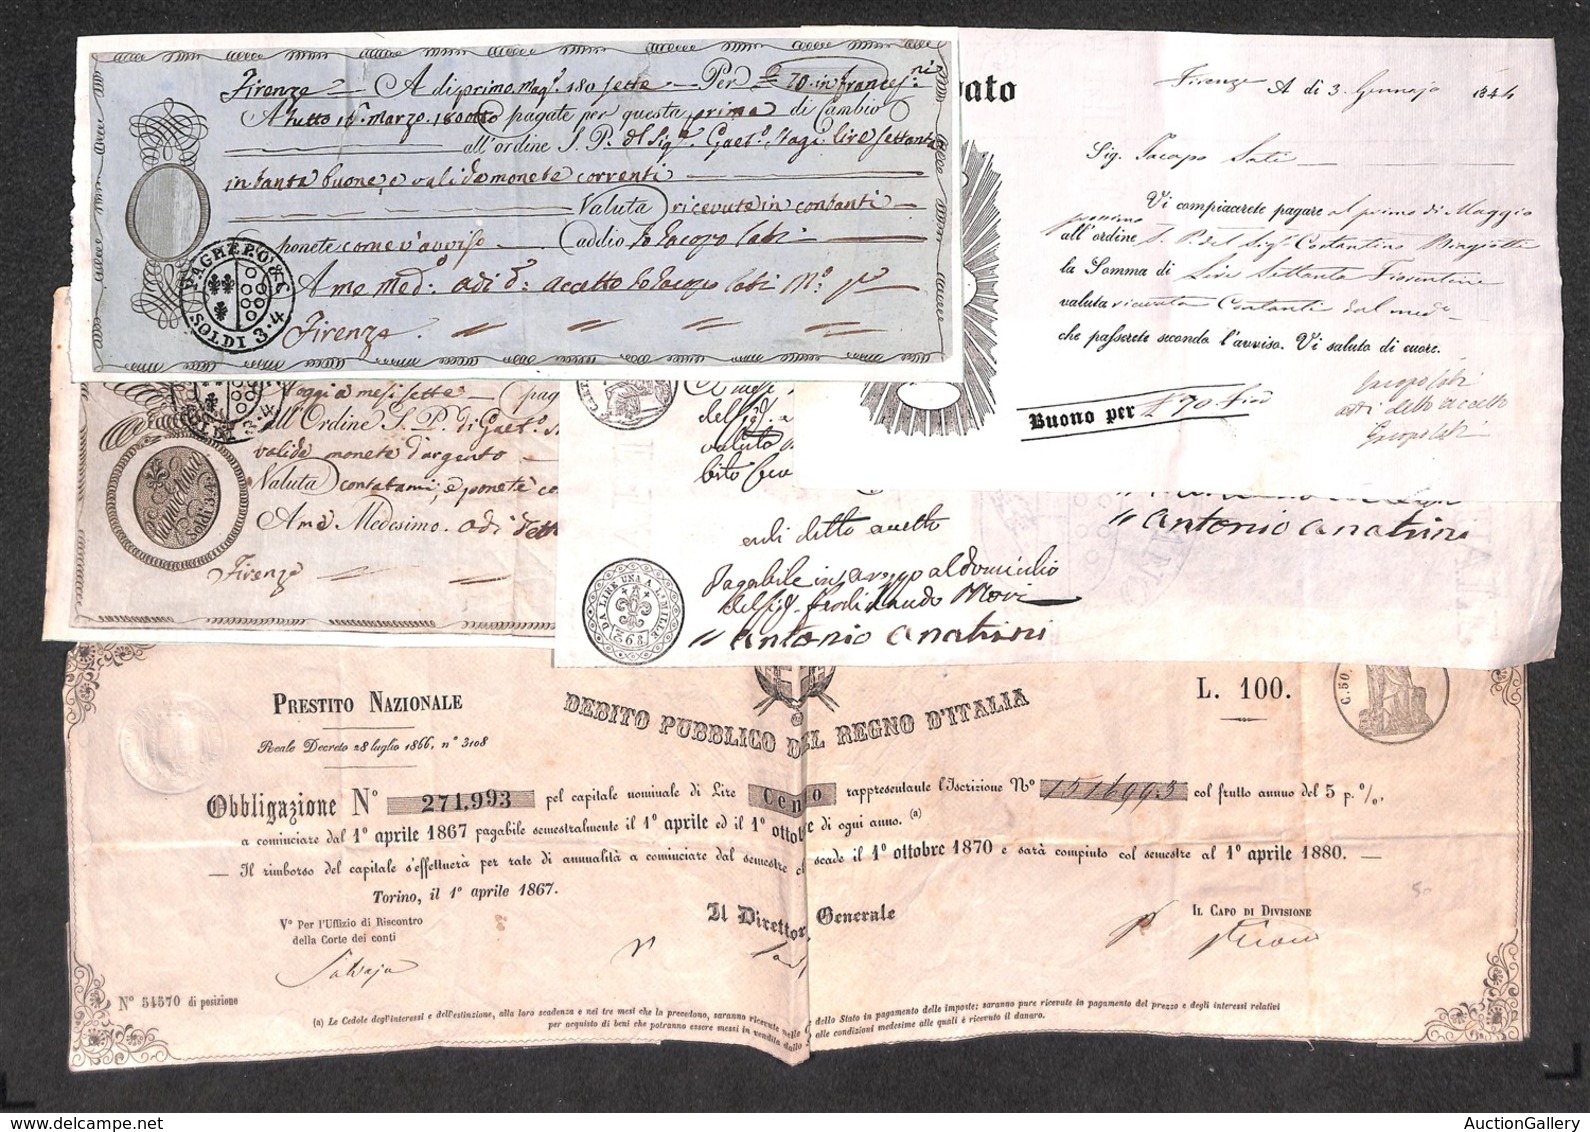 Firenze A di primo Magº. 180 sette Per £ 70. in francesⁿⁱ
A tutto 15. Marzo. 18 otto pagate per questa prima di Cambio
all'ordine S. P. del Sigʳ. Gaetº. Stagi lire settanta
in tanta buone, e valide monete correnti
Valuta ricevuta in contanti
ponete come v'avviso addio Io Jacopo Sati
A me Medº. adi dº. accetto Io Jacopo Sati
Firenze
PAGHERO' & C.
SOLDI 3.4
vato
Firenze A di 3. Gennajo 1844
Sig. Jacopo Sati
Vi compiacerete pagare al primo di Maggio
prossimo
all'ordine S. P. del Sigʳ. Costantino Biagiotti
la Somma di Lire Settanta Fiorentine
valuta ricevuta Contanti dal medº
che passerete secondo l'avviso. Vi saluto di cuore.
Jacopo Sati
adi detto accetto
Jacopo Sati
Buono per £ 70 Fior
Oggi a mesi sette pag
all'Ordine S. P. di Gaetº. S
valide monete d'argento
Valuta contatami, e ponete co
Ame Medesimo adi dett
Firenze
SOLDI 3.4
Soldi 3.4
A mesi
del sigʳ. a
valuta
bito
adi ditto accetto
Pagabile in arezzo al domicilio
del sigʳ. Ferdinando Mori
Antonio Anatrini
Antonio Anatrini
DA LIRE UNA A L. MILLE
1863
PRESTITO NAZIONALE
Reale Decreto 28 luglio 1866, nº 3108
DEBITO PUBBLICO DEL REGNO D'ITALIA
L. 100.
C. 50
Obbligazione Nº 271,993 pel capitale nominale di Lire Cento rappresentante l'Iscrizione Nº 1516993 col frutto annuo del 5 p.%.
a cominciare dal 1º aprile 1867 pagabile semestralmente il 1º aprile ed il 1º ottobre di ogni anno. (a)
— Il rimborso del capitale s'effettuerà per rate di annualità a cominciare dal semestre ch scade il 1º ottobre 1870 e sarà compiuto col semestre al 1º aprile 1880. —
Torino, il 1º aprile 1867.
Vº Per l'Uffizio di Riscontro
della Corte dei conti
Il Direttor Generale
IL CAPO DI DIVISIONE
50
Nº 54570 di posizione
(a) Le Cedole degl'interessi e dell'estinzione, alla loro scadenza e nei tre mesi che la precedono, saranno ricevute nelle dello Stato in pagamento delle imposte; saranno pure ricevute in pagamento del prezzo e degli interessi relativi
per acquisto di beni che potranno essere messi in vendita dallo alle condizioni medesime alle quali è ricevuto il danaro.
AuctionGallery